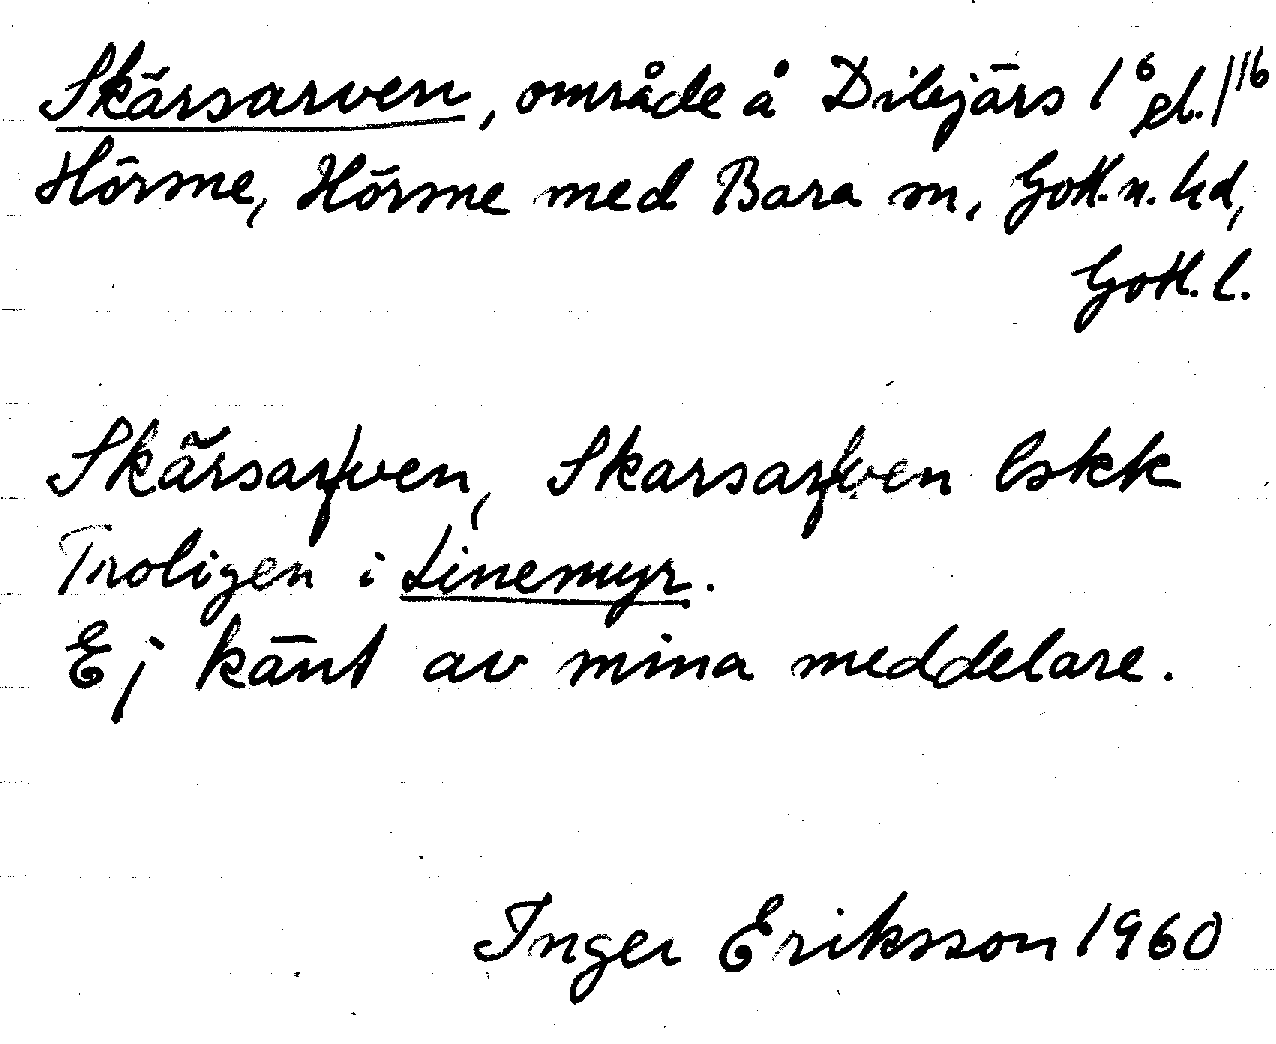 Skärsarven, område å Dibjärs 1⁶ el. 1¹⁶
Hörsne, Hörsne med Bara sn, Gotl. n. hd,
Gotl. l.
Skärsarfven, Skarsarfven lskk
Troligen i Linemyr.
Ej känt av mina meddelare.
Inger Eriksson 1960